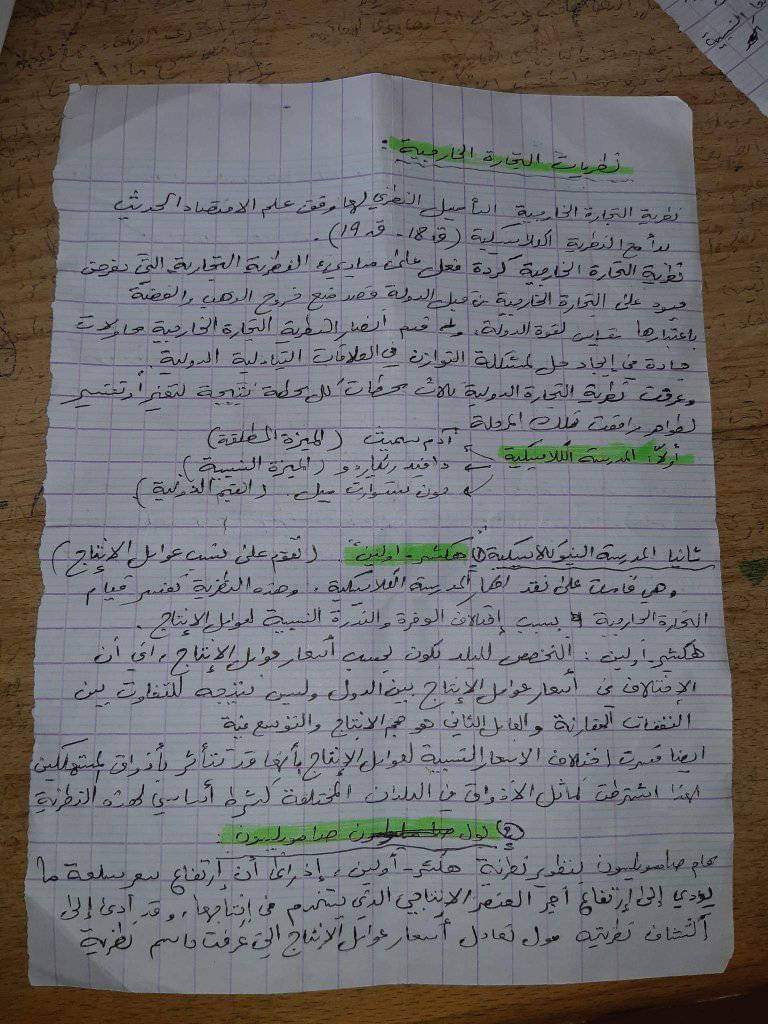 نظريات التجارة الخارجية :
نظرية التجارة الخارجية التأصيل النظري لها وفق علم الاقتصاد الحديث
بدأ مع النظرية الكلاسيكية (ق 18 - ق 19).
نظرية التجارة الخارجية كردة فعل على مبادئ النظرية التجارية التي تفرض
قيود على التجارة الخارجية من قبل الدولة قصد منع خروج الذهب والفضة
باعتبارها مقياس لقوة الدولة، قدم أنصار النظرية التجارة الخارجية محاولات
جادة في إيجاد حل لمشكلة التوازن في العلاقات التبادلية الدولية.
وعرفت نظرية التجارة الدولية ثلاث محطات كل محطة نتيجة لتغير أو تفسير
لظواهر رافقت تلك المرحلة
آدم سميث (الميزة المطلقة)
أولا: المدرسة الكلاسيكية
دافيد ريكاردو (الميزة النسبية)
جون ستوارت ميل. (القيم الدولية)
ثانيا المدرسة النيوكلاسيكية ① هكشر - أولين". (تقوم على نسب عوامل الإنتاج)
وهي قامت على نقد المدرسة الكلاسيكية. وهذه النظرية تفسر قيام
التجارة الخارجية بسبب إختلاف الوفرة والندرة النسبية لعوامل الإنتاج.
هكشر - أولين : التخصص للبلد تكون بحسب أسعار عوامل الإنتاج، أي أن
الإختلاف في أسعار عوامل الإنتاج بين الدول وليس نتيجة للتفاوت بين
النفقات المقارنة والعامل الثاني هو حجم الانتاج والتوسع فيه
أيضا فسرت اختلاف الاسعار النسبية لعوامل الإنتاج بأنها قد تتأثر بأذواق المستهلكين
لهذا اشترطت تماثل الأذواق في البلدان المختلفة كشرط أساسي لهذه النظرية
② بول صامويلسون
قام صامويلسون بتطوير نظرية هكشر - أولين، إذ رأى أن إرتفاع سعر سلعة ما
يؤدي إلى إرتفاع أجر العنصر الإنتاجي الذي يستخدم في إنتاجها، وقد أدى إلى
اكتشاف نظريته حول تعادل أسعار عوامل الإنتاج التي عرفت باسم نظرية